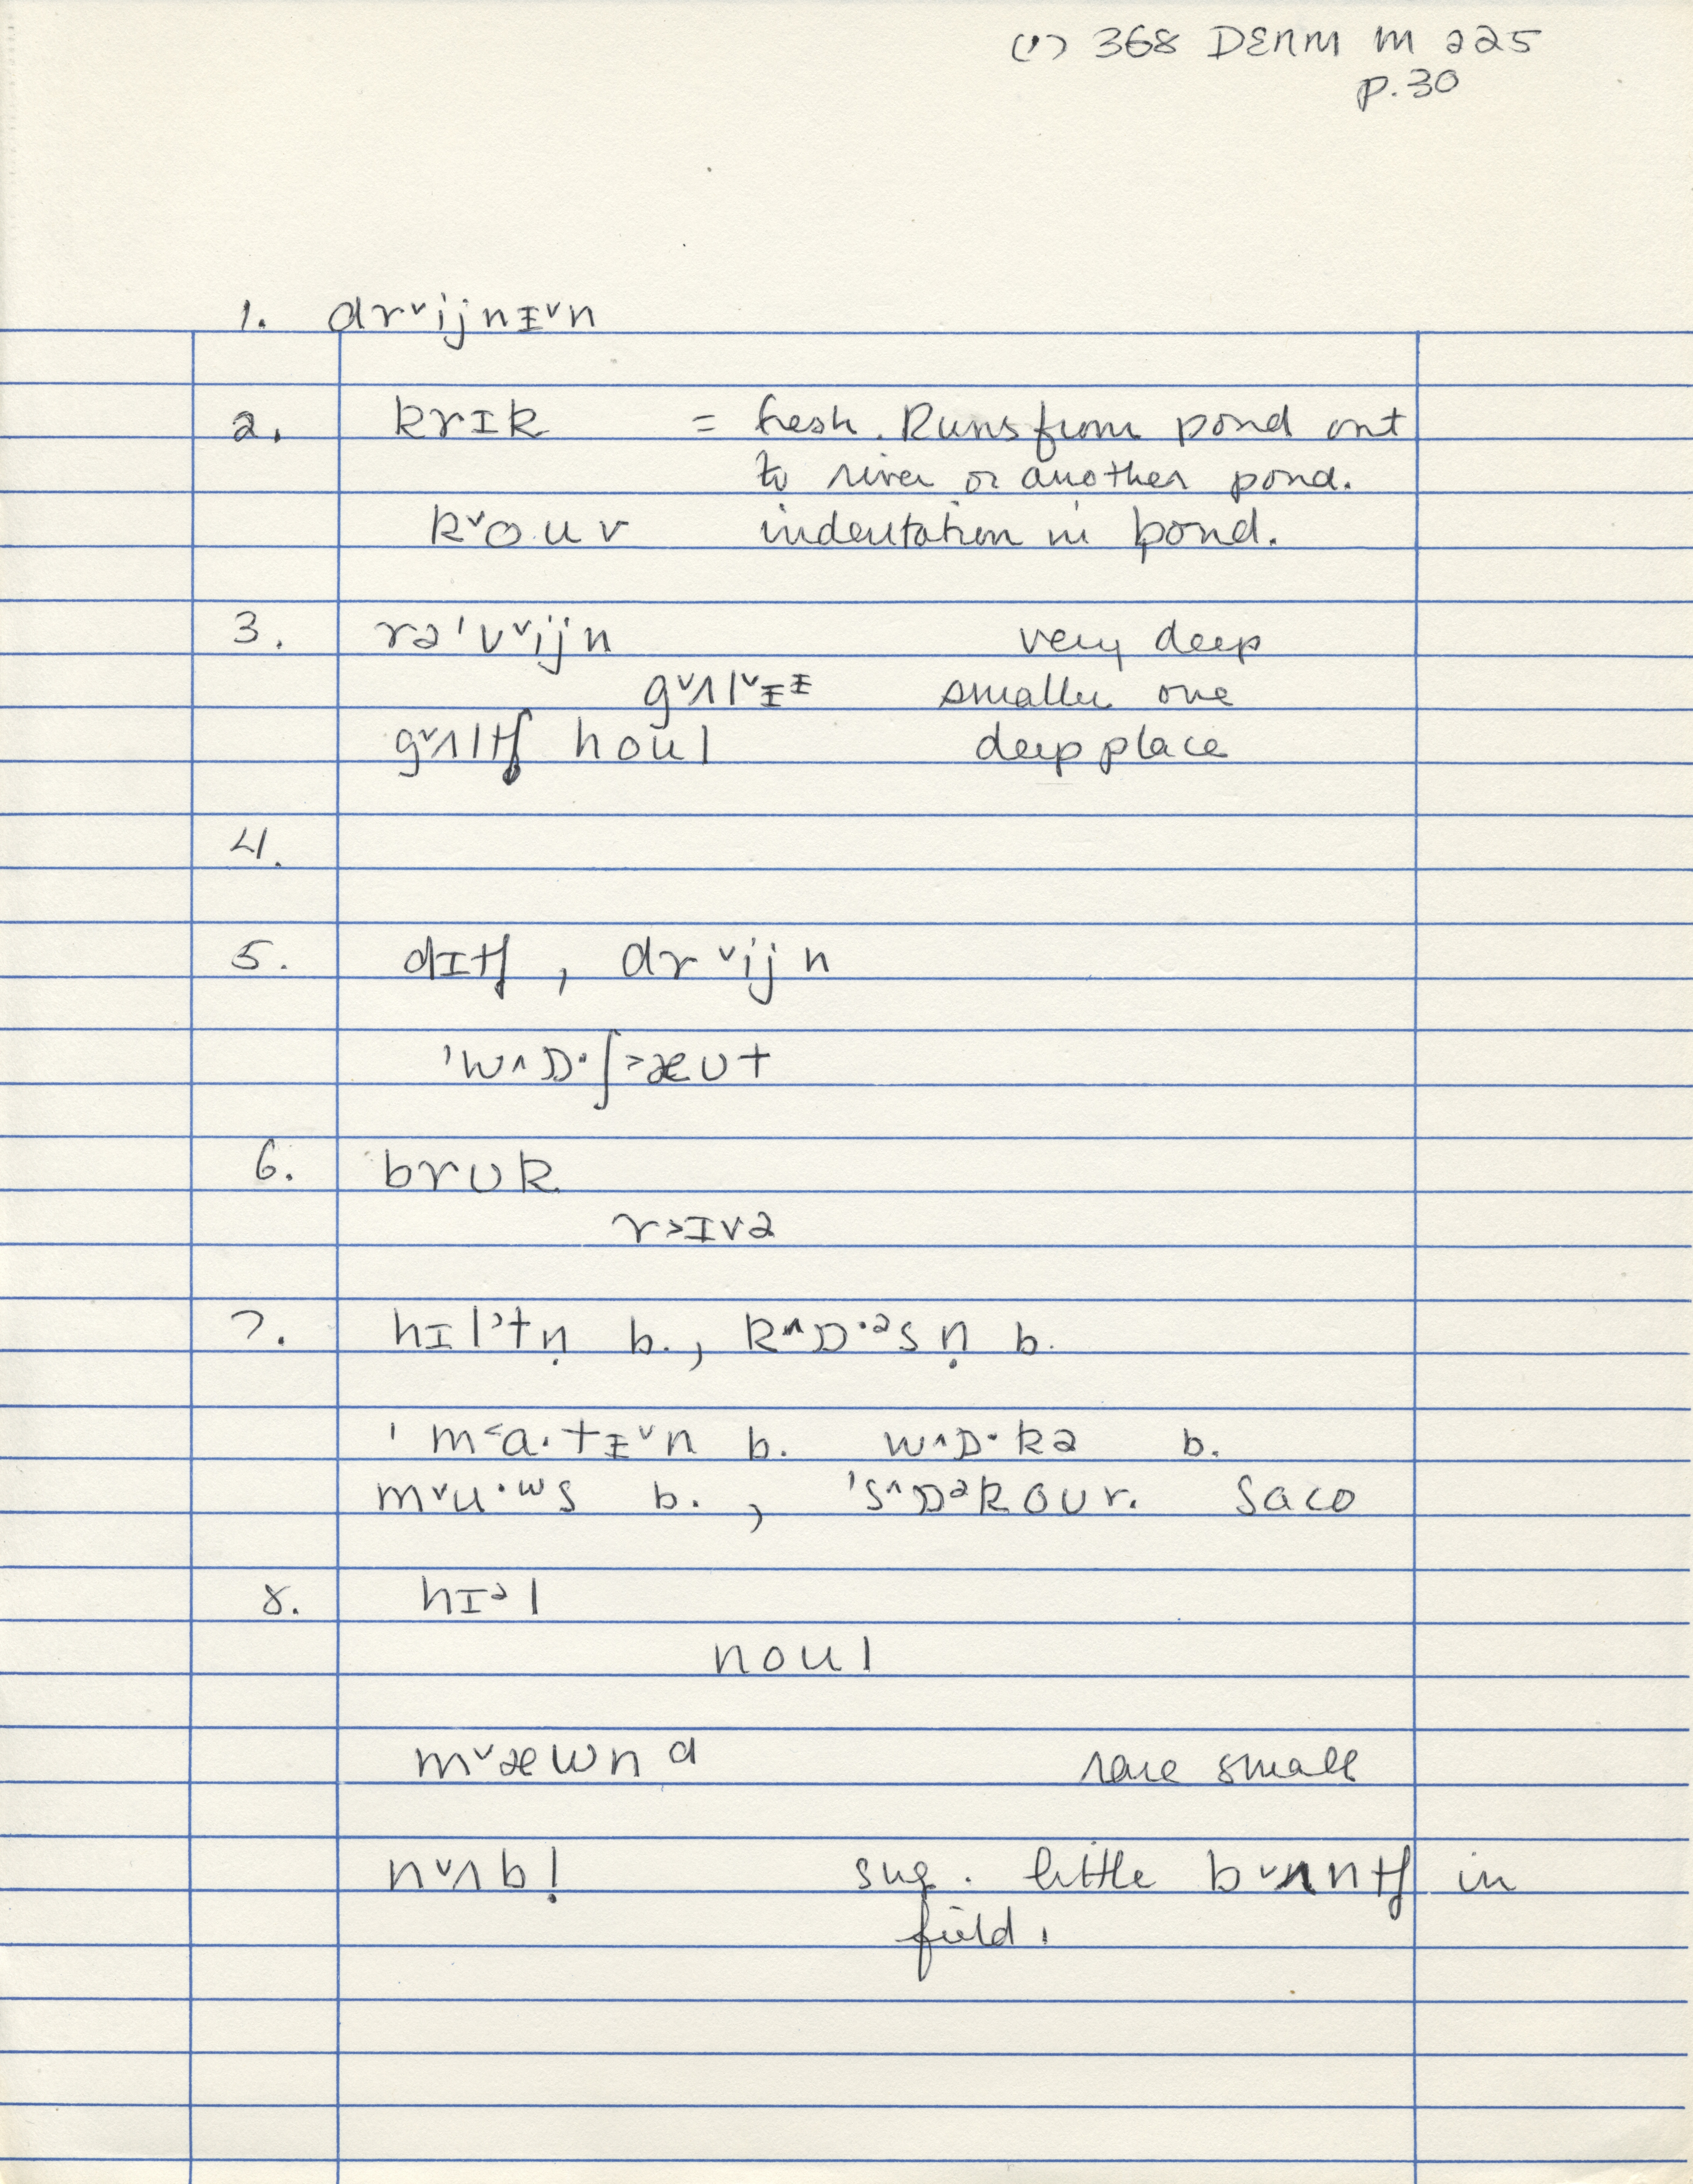 (1) 368 DENM M 225
p.30
1. drˇijnɪˇn
2. krɪk = fresh. Runs from pond out
to river or another pond.
kˇo.uv indentation in pond.
3. rə'vˇijn very deep
gˇʌlˇɪɪ smaller one
gˇʌltʃ houl deep place
4.
5. dɪtʃ, drˇijn
'w^ɒ·ʃ>æʊt
6. brʊk
r>ɪvə
7. hɪl>tṇ b., k^ɒ·ᵊsṇ b.
'm<a·tɨˇn b. w^ɒ·kə b.
mˇu·ʷs b., 's^ɒᵊkoʊ r. Saco
8. hɪᵊl
noul
mˇæwnd rare small
nˇʌbḷ sug. little bˇʌntʃ in
field.